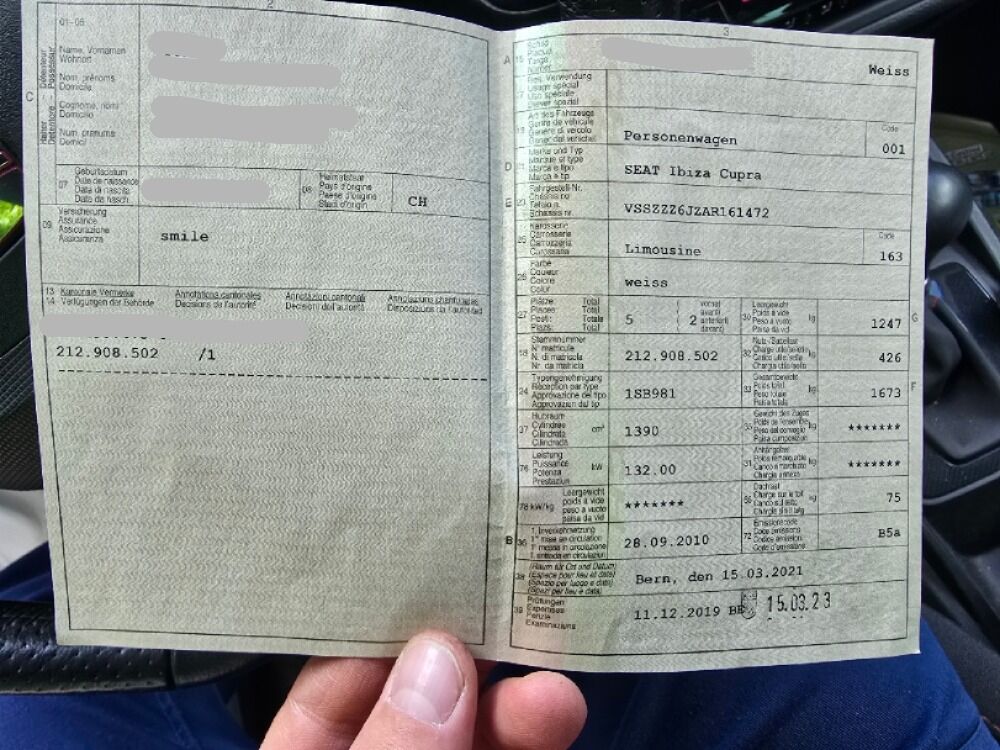 2
01-06
C
Name, Vornamen
Wohnort
Nom, prénoms
Domicile
Cognome, nomi
Domicilio
Num, prenums
Domicil
07
Geburtsdatum
Date de naissance
Data di nascita
Data da nasch.
08
Heimatstaat
Pays d'origine
Paese d'origine
Stadi d'origin
CH
09
Versicherung
Assurance
Assicurazione
Assicuranza
smile
13 Kantonale Vermerke
14 Verfügungen der Behörde
Annotations cantonales
Décisions de l'autorité
Annotazioni cantonali
Decisioni dell'autorità
Annotaziuns chantunalas
Disposiziuns da l'autoritad
212.908.502 /1
3
A 15
Schild
Plaque
Targa
Numer
Weiss
Bes. Verwendung
Usage spécial
Uso speciale
Diever spezial
19
Art des Fahrzeugs
Genre de véhicule
Genere di veicolo
Gener dal vehichel
Personenwagen
Code
001
D 21
Marke und Typ
Marque et type
Marca e tipo
Marca e tip
SEAT Ibiza Cupra
E 23
Fahrgestell-Nr.
Châssis no
Telaio n.
Schassis nr.
VSSZZZ6JZAR161472
25
Karosserie
Carrosserie
Carrozzeria
Carossaria
Limousine
Code
163
26
Farbe
Couleur
Colore
Colur
weiss
27
Plätze: Total
Places: Total
Posti: Totale
Plazs: Total
5
2
vorne
avant
anteriori
davant
30
Leergewicht
Poids à vide
Peso a vuoto
Paisa da vid
kg
1247
G
18
Stammnummer
N° matricule
N. di matricola
Nr. da matricla
212.908.502
32
Nutz-/Sattellast
Charge utile/sellette
Carico utile/sella
Chargia utila/sella
kg
426
24
Typengenehmigung
Réception par type
Approvazione del tipo
Approvaziun dal tip
1SB981
33
Gesamtgewicht
Poids total
Peso totale
Paisa totala
kg
1673
F
37
Hubraum
Cylindrée
Cilindrata
Cilindrada
cm³
1390
35
Gewicht des Zuges
Poids de l'ensemble
Peso del convoglio
Paisa cumposiziun
kg
*******
76
Leistung
Puissance
Potenza
Prestaziun
kW
132.00
31
Anhängelast
Poids remorquable
Carico rimorchiato
Chargia annexa
kg
*******
78 kW/kg
Leergewicht
poids à vide
peso a vuoto
paisa da vid
*******
55
Dachlast
Charge sur le toit
Carico sul tetto
Chargia sin il tetg
kg
75
B 36
1. Inverkehrsetzung
1re mise en circulation
1a messa in circolazione
1. entrada en circulaziun
28.09.2010
72
Emissionscode
Code émissions
Codice emissioni
Code d'emissiuns
B5a
38
(Raum für Ort und Datum)
(Espace pour lieu et date)
(Spazio per luogo e data)
(Spazi per lieu e data)
Bern, den 15.03.2021
39
Prüfungen
Expertises
Perizie
Examinaziuns
11.12.2019 BE
15.03.23